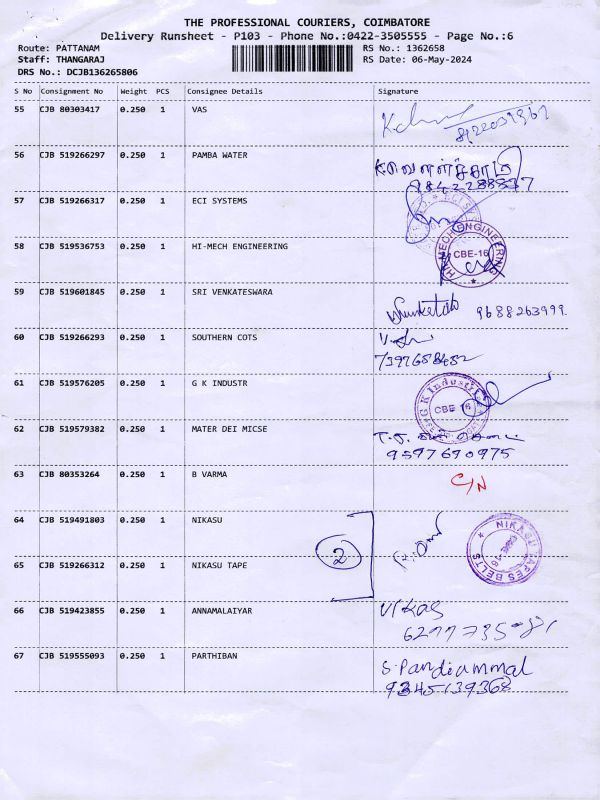 THE PROFESSIONAL COURIERS, COIMBATORE
Delivery Runsheet - P103 - Phone No.:0422-3505555 - Page No.:6
Route: PATTANAM
RS No.: 1362658
Staff: THANGARAJ
RS Date: 06-May-2024
DRS No.: DCJB136265806
S No Consignment No Weight PCS Consignee Details Signature
55 CJB 80303417 0.250 1 VAS
56 CJB 519266297 0.250 1 PAMBA WATER
9842288837
57 CJB 519266317 0.250 1 ECI SYSTEMS
58 CJB 519536753 0.250 1 HI-MECH ENGINEERING
HI-MECH ENGINEERING CBE-16
59 CJB 519601845 0.250 1 SRI VENKATESWARA
9688263999
60 CJB 519266293 0.250 1 SOUTHERN COTS
61 CJB 519576205 0.250 1 G K INDUSTR
G K Industri CBE 16
62 CJB 519579382 0.250 1 MATER DEI MICSE
9597690975
63 CJB 80353264 0.250 1 B VARMA C/N
64 CJB 519491803 0.250 1 NIKASU
2
NIKASU TAPES BELTS
65 CJB 519266312 0.250 1 NIKASU TAPE
66 CJB 519423855 0.250 1 ANNAMALAIYAR
Vikas
67 CJB 519555093 0.250 1 PARTHIBAN
S.Pandiammal
9345139368